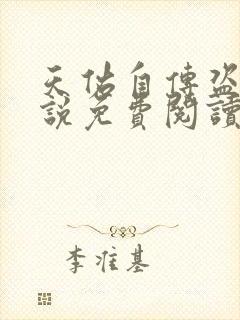 天佑自傳盜
說免費閱讀
李准基